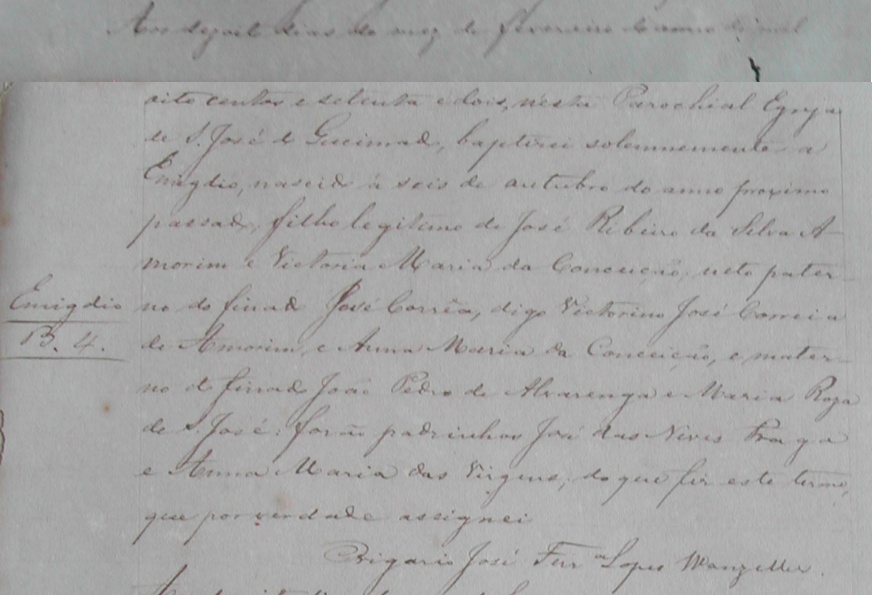 Aos dezoito dias do mez de fevereiro do anno de mil
oito centos e setenta e dois, nesta Parochial Egreja
de S. José do Gueimado, baptizei solemnemente a
Emigdio, nascido á seis de outubro do anno proximo
passado, filho legitimo de José Ribeiro da Silva A-
morim e Victoria Maria da Conceição, neto pater-
no do finado José Corrêa, digo Victorino José Correia
de Amorim, e Anna Maria da Conceição, e mater-
no do finado João Pedro de Alvarenga e Maria Roza
de S. José: forão padrinhos José das Neves Fraga
e Anna Maria das Virgens; do que fiz este termo,
que por verdade assignei
Emigdio
B. 4.
O Vigario José Ferr.ª Lopes Wanzeller.